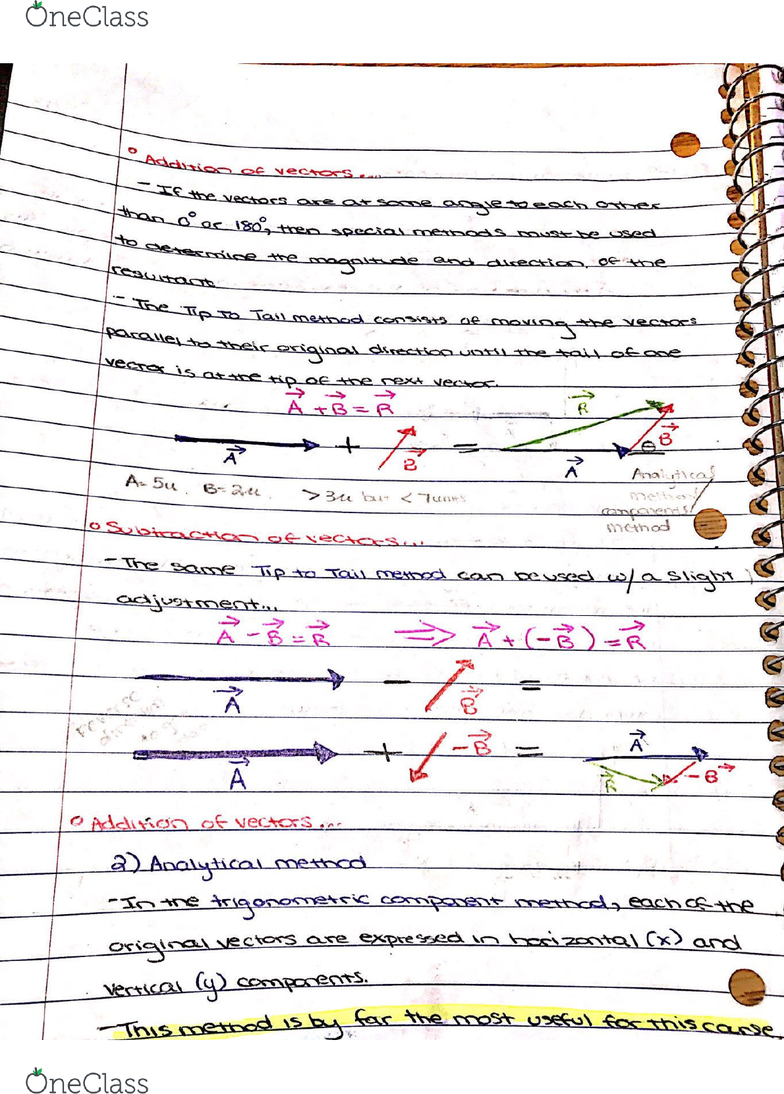 OneClass
° Addition of vectors...
- If the vectors are at some angle to each other
than 0° or 180°, then special methods must be used
to determine the magnitude and direction of the
resultant
- The Tip to Tail method consists of moving the vectors
parallel to their original direction until the tail of one
vector is at the tip of the next vector.
A + B = R
R
A + B = A θ B
A = 5u B = 2u > 3u but < 7units
Analytical
method
components
method
° Subtraction of vectors...
- The same Tip to Tail method can be used w/ a slight
adjustment...
A - B = R ⇒ A + (-B) = R
A - B =
reverse
A + -B = A R -B
° Addition of vectors...
2) Analytical method
- In the trigonometric component method, each of the
original vectors are expressed in horizontal (x) and
vertical (y) components.
- This method is by far the most useful for this
OneClass